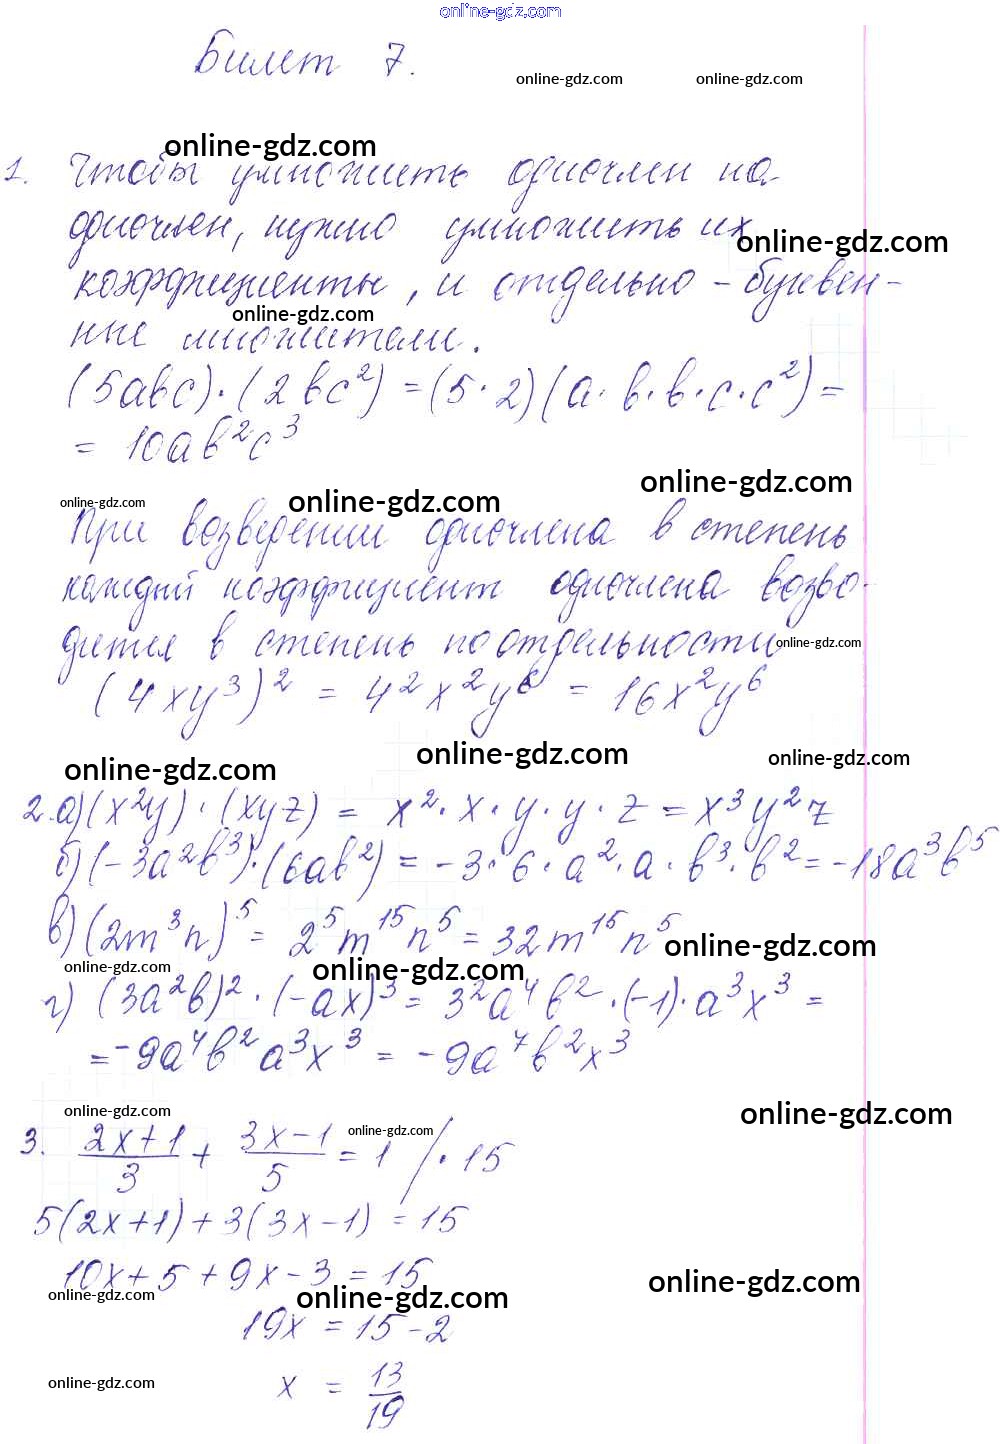 online-gdz.com
Билет 7.
online-gdz.com online-gdz.com
online-gdz.com
1. Чтобы умножить одночлен на
одночлен, нужно умножить их
online-gdz.com
коэффициенты, и отдельно - буквен-
online-gdz.com
ные множители.
(5abc)·(2bc²) = (5·2)(a·b·b·c·c²) =
= 10ab²c³
online-gdz.com
online-gdz.com online-gdz.com
При возведении одночлена в степень
каждый коэффициент одночлена возво-
дится в степень по отдельности
online-gdz.com
(4xy³)² = 4²x²y⁶ = 16x²y⁶
online-gdz.com online-gdz.com online-gdz.com
2. а) (x²y)·(xyz) = x²·x·y·y·z = x³y²z
б) (-3a²b³)·(6ab²) = -3·6·a²·a·b³·b² = -18a³b⁵
в) (2m³n)⁵ = 2⁵m¹⁵n⁵ = 32m¹⁵n⁵
online-gdz.com
online-gdz.com online-gdz.com
г) (3a²b)²·(-ax)³ = 3²a⁴b²·(-1)·a³x³ =
= -9a⁴b²a³x³ = -9a⁷b²x³
online-gdz.com online-gdz.com
online-gdz.com
3. (2x+1)/3 + (3x-1)/5 = 1 /·15
5(2x+1)+3(3x-1) = 15
10x+5+9x-3 = 15
online-gdz.com online-gdz.com online-gdz.com
19x = 15-2
online-gdz.com
x = 13/19